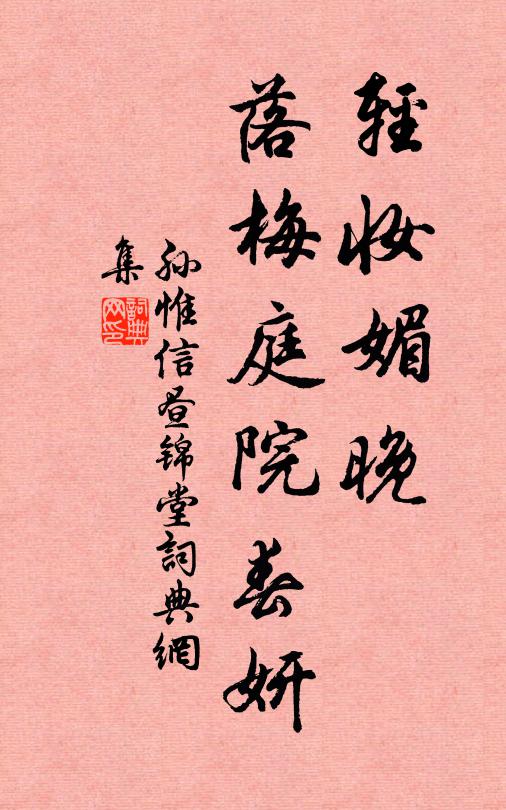 輕妝媚晚
落梅庭院春妍
孙惟信昼锦堂詞典網
集
詞典
网印